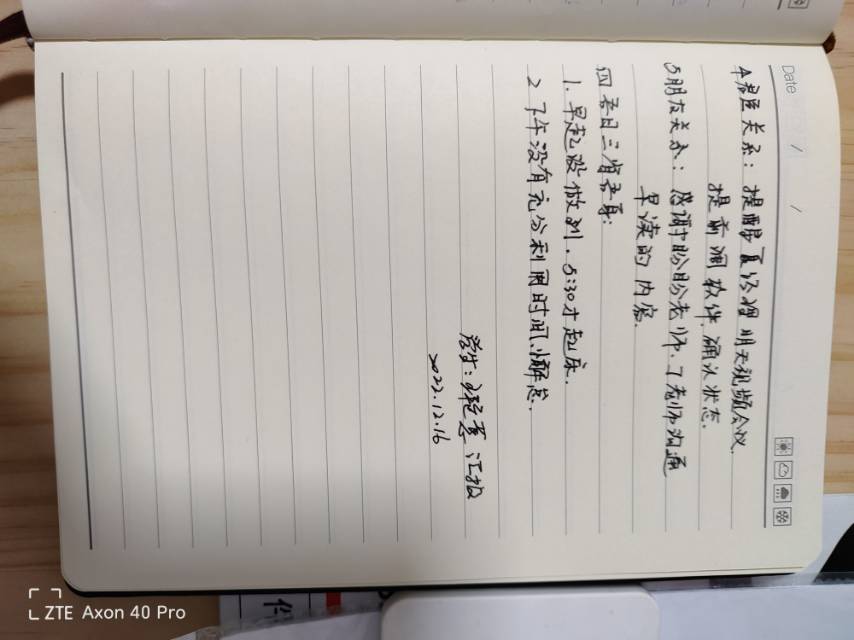 Date / /
4. 君臣关系：提醒夏经理明天视频会议，
提前调软件，确认状态。
5 朋友关系：感谢盼盼老师、丁老师沟通
早读的内容.
四 吾日三省吾身:
1. 早起没做到，5:30才起床.
2 下午没有充分利用时间，懈怠.
学生: 汇报
2022.12.16
ZTE Axon 40 Pro